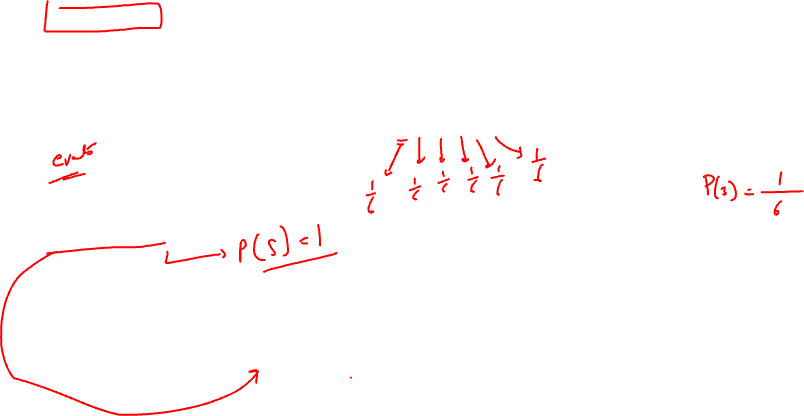 events
1/6 1/6 1/6 1/6 1/6 1/6
P(3) = 1/6
P(S) = 1